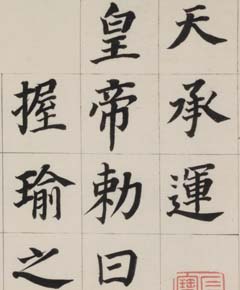 天承運
皇帝勅曰
握瑜之